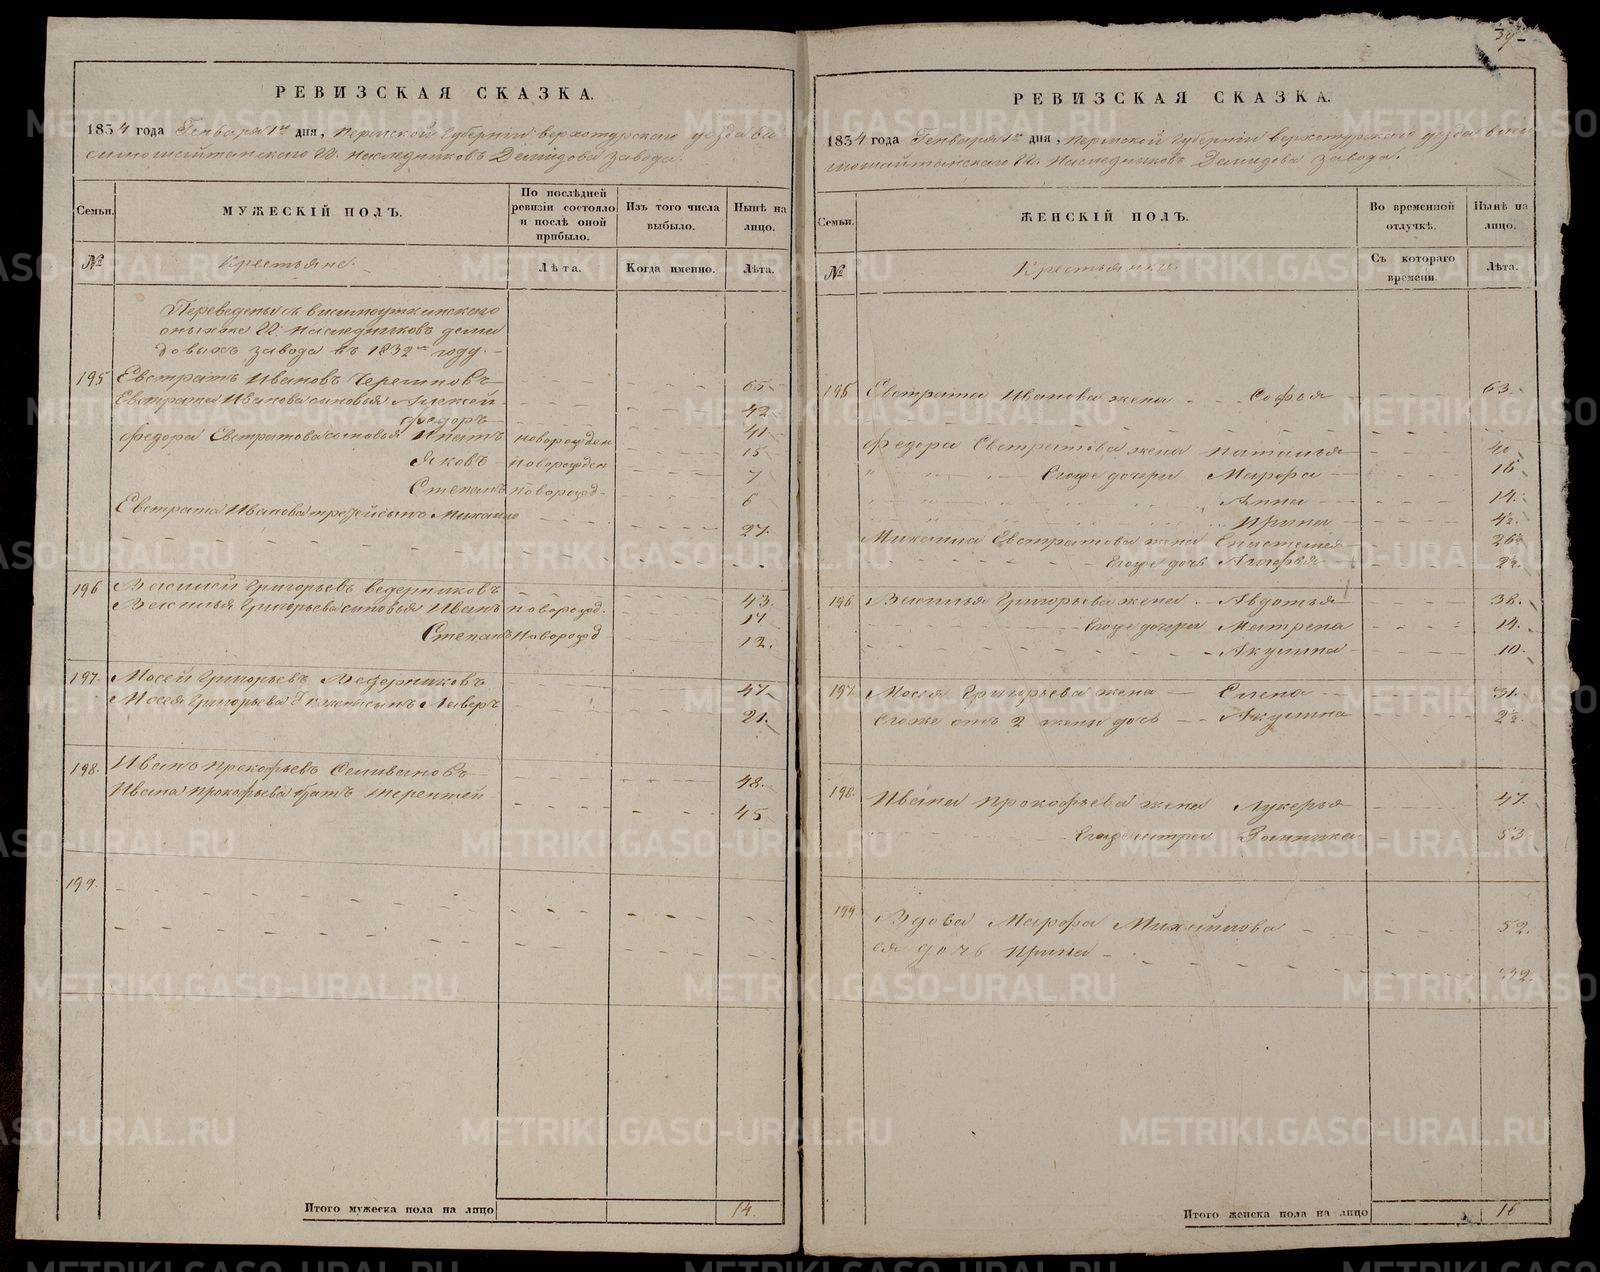 39
РЕВИЗСКАЯ СКАЗКА.
1834 года Генваря 1го дня, Пермской Губернии верхотурского уезда ви-
симошайтанского Гг. наследниковъ Демидова завода.
Семьи.
МУЖЕСКІЙ ПОЛЪ.
По послѣдней ревизіи состояло и послѣ оной прибыло.
Изъ того числа выбыло.
Нынѣ на лицо.
№
Крестьяне.
Лѣта.
Когда именно.
Лѣта.
Переведены съ висимоуткинского
Гг. наследниковъ деми
довыхъ завода въ 1832мъ году.
195 Евстратъ Ивановъ 65
Евстрата Иванова сыновья Алексей 42
Федоръ 41
Федора Евстратова сыновья Игнатъ новорожден 15
Яковъ новорожден 7
Степанъ новорожд. 6
Евстрата Иванова третей сынъ Михайло 27.
196 Василей Григорьевъ Ведерниковъ 43.
Василья Григорьева сыновья Иванъ новорожд. 17
Степанъ новорожд 12.
197. Мосей Григорьевъ Ведерниковъ 47
Мосея Григорьева 21.
198. Иванъ Прокофьевъ Селивановъ 48.
Ивана Прокофьева братъ Терентей 45
199.
Итого мужеска пола на лицо 14.
РЕВИЗСКАЯ СКАЗКА.
1834 года Генваря 1го дня, Пермской Губерніи верхотурского уезда виси
мошайтанского Гг. Наследниковъ Демидова завода.
Семьи.
ЖЕНСКІЙ ПОЛЪ.
Во временной отлучкѣ.
Нынѣ на лицо.
№
Крестьянки.
Съ котораго времени.
Лѣта.
195 Евстрата Иванова жена Софья 63.
Федора Евстратова жена Наталья 40
Егоже дочери Марфа 16
Анна 14.
Ирина 4½.
Михаила Евстратова жена Анастасия 26½
Егоже дочь 2½.
196 Василья Григорьева жена Авдотья 38.
Егоже дочери Матрена 14.
Акулина 10.
197. Мосея Григорьева жена Елена 31.
Егоже отъ 2 жены дочь Акулина 2½.
198. Ивана Прокофьева жена Лукерья 47.
Егоже сестра 53
199 Вдова Марфа Михайлова 52.
ея дочь Ирина 32.
Итого женска пола на лицо 16
METRIKI.GASO-URAL.RU